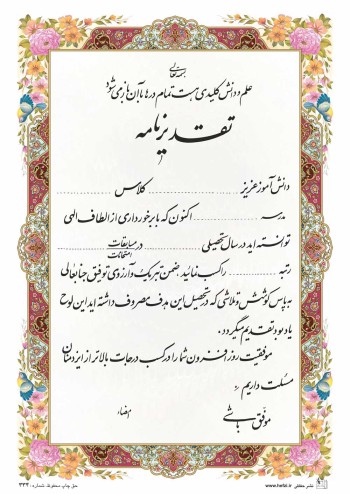 بسمه تعالی
علم و دانش کلیدی است تمام درها با آن باز می شود
تقدیرنامه
دانش آموز عزیز ........ کلاس ........
مدرسه ........ اکنون که با برخورداری از الطاف الهی
توانسته اید در سال تحصیلی ........ در مسابقات
امتحانات
رتبه ........ را کسب نمائید. ضمن تبریک و آرزوی توفیق جنابعالی
به پاس کوشش و تلاشی که در تحصیل این هدف مصروف داشته اید این لوح
یادبود تقدیم میگردد.
موفقیت روزافزون شما را در کسب درجات بالاتر از ایزد منان
مسئلت داریم
امضاء
موفق باشی
حق چاپ محفوظ. شماره: ۳۳۲
www.hefzi.ir